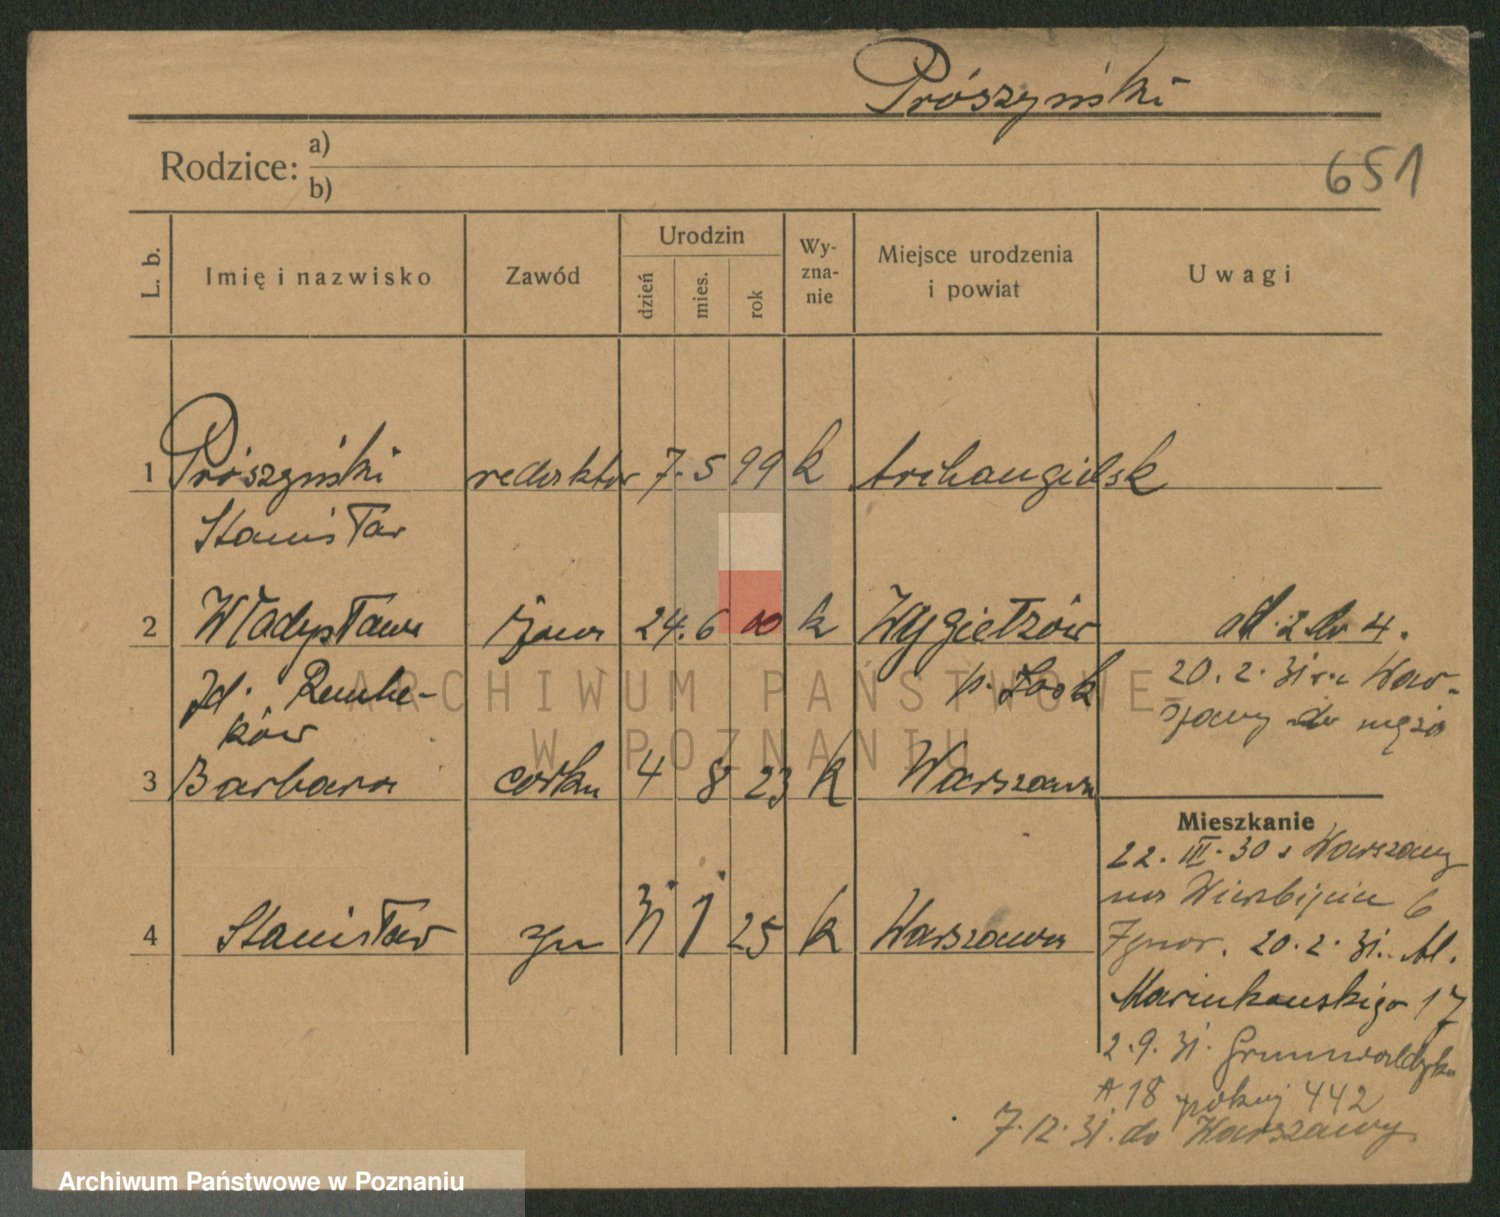 Prószyński
651
Rodzice: a)
b)
L. b.
Imię i nazwisko
Zawód
Urodzin
dzień
mies.
rok
Wy-
zna-
nie
Miejsce urodzenia
i powiat
Uwagi
1 Prószyński redaktor 7. 5 99 k Archangielsk
Stanisław
2 Władysława żona 24. 6 00 k Wygiełzów od 2 do 4.
p. Łask 20. 2. 31 r. z War-
szawy do męża
3 Barbara córka 4 8 23 k Warszawa
Mieszkanie
22. III. 30 z Warszawy
na 6
4 Stanisław syn 31 1 25 k Warszawa
20. 2. 31. Al.
Marcinkowskiego 17
2. 9. 31. Grunwaldzka
A 18 pokój 442
7. 12. 31. do Warszawy
ARCHIWUM PAŃSTWOWE
W POZNANIU
Archiwum Państwowe w Poznaniu